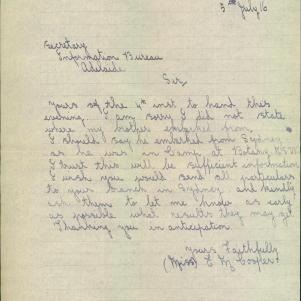 5th July 16
Secretary
Information Bureau
Adelaide
Sir,
Yours of the 4th inst to hand this
evening. I am sorry I did not state
where my brother embarked from,
I should say he embarked from Sydney
as he was in Camp at Botany N.S.W.
I trust this will be sufficient information
I wish you would send all particulars
to your branch in Sydney and kindly
ask them to let me know as early
as possible what results they may get.
Thanking you in anticipation.
Yours Faithfully
(Miss) C M Cooper.